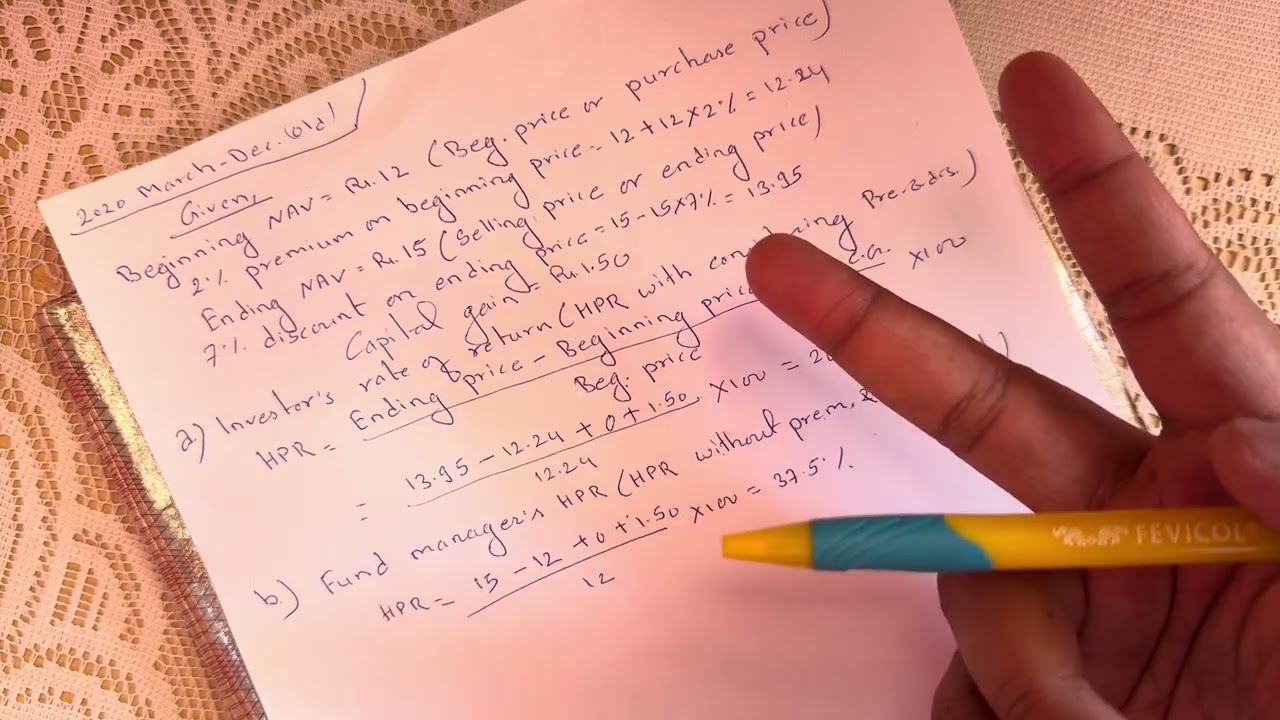 2020 March-Dec. (old)
Given,
Beginning NAV = Rs. 12 (Beg. price or purchase price)
2% premium on beginning price = 12 + 12 × 2% = 12.24
Ending NAV = Rs. 15 (Selling price or ending price)
7% discount on ending price = 15 - 15×7% = 13.95
Capital gain = Rs. 1.50
a.) Investor's rate of return (HPR with Pre. & dis.)
HPR = Ending price - Beginning price C.G. ×100
Beg. price
= 13.95 - 12.24 + 0 + 1.50 ×100 =
12.24
b.) Fund manager's HPR (HPR without prem.
HPR = 15 - 12 + 0 + 1.50 ×100 = 37.5%
12
FEVICOL